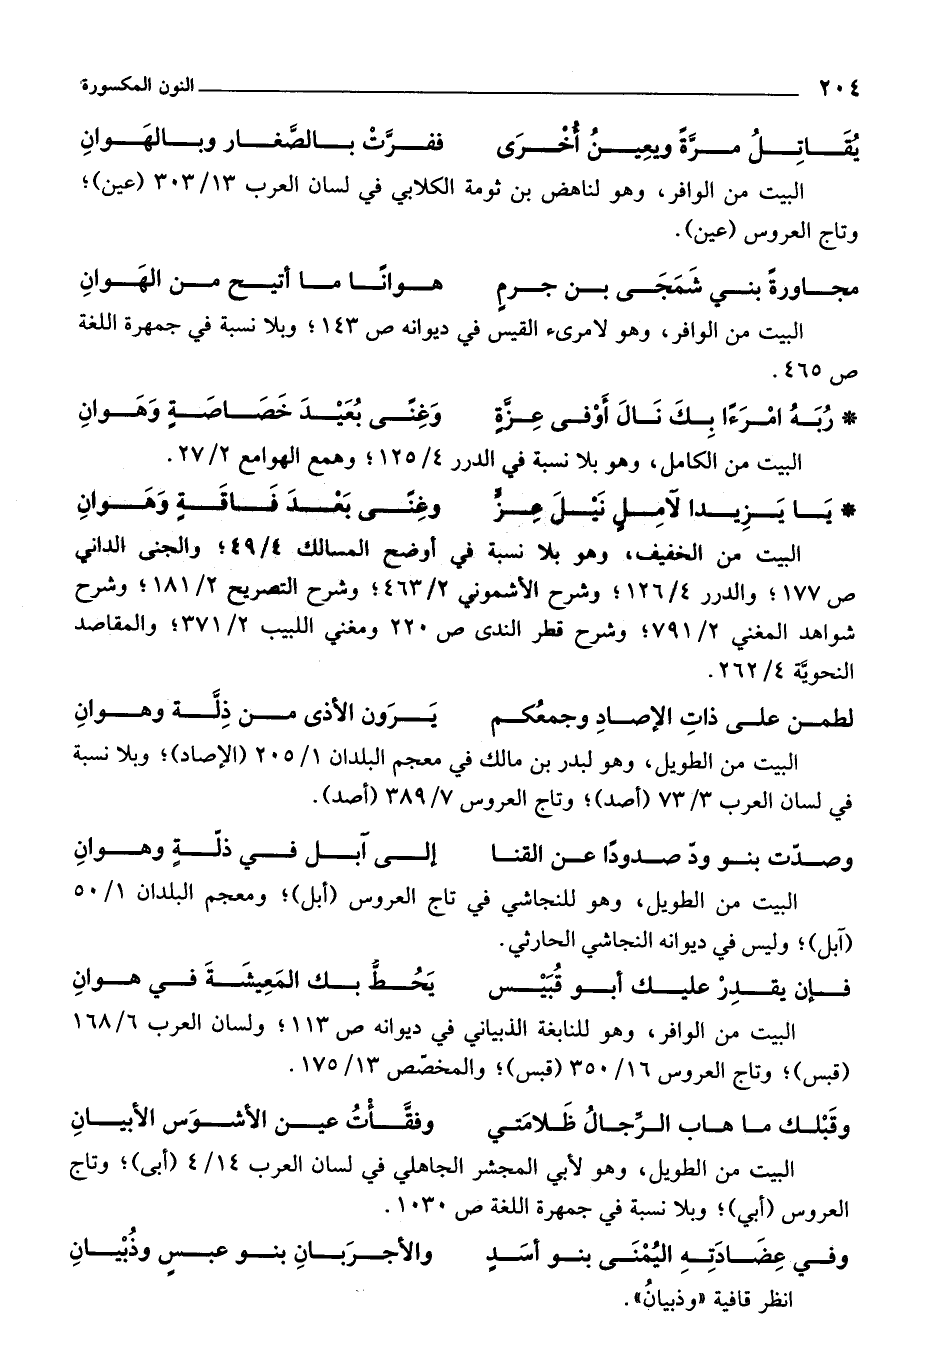 ٢٠٤ النون المكسورة
يُقَاتِلُ مرَّةً ويعِينُ أُخْرَى ففرَّتْ بالصَّغار وبالهَوانِ
البيت من الوافر، وهو لناهض بن ثومة الكلابي في لسان العرب ١٣/ ٣٠٣ (عين)؛
وتاج العروس (عين).
مجاورةً بني شَمَجَى بن جرمٍ هوانًا ما أتيح من الهَوانِ
البيت من الوافر، وهو لامرىء القيس في ديوانه ص ١٤٣؛ وبلا نسبة في جمهرة اللغة
ص ٤٦٥.
* رُبَهُ امْرَءًا بِكَ نَالَ أَوْفى عِزَّةٍ وَغِنًى بُعَيْدَ خَصَاصَةٍ وَهَوانِ
البيت من الكامل، وهو بلا نسبة في الدرر ٤/ ١٢٥؛ وهمع الهوامع ٢/ ٢٧.
* يَا يَزِيدا لآمِلٍ نَيْلَ عِزٍّ وغِنًى بَعْدَ فَاقَةٍ وَهَوانِ
البيت من الخفيف، وهو بلا نسبة في أوضح المسالك ٤/ ٤٩؛ والجنى الداني
ص ١٧٧؛ والدرر ٤/ ١٢٦؛ وشرح الأشموني ٢/ ٤٦٣؛ وشرح التصريح ٢/ ١٨١؛ وشرح
شواهد المغني ٢/ ٧٩١؛ وشرح قطر الندى ص ٢٢٠ ومغني اللبيب ٢/ ٣٧١؛ والمقاصد
النحويَّة ٤/ ٢٦٢.
لطمن على ذاتِ الإصادِ وجمعُكم يَرَون الأذى من ذِلَّة وهوانِ
البيت من الطويل، وهو لبدر بن مالك في معجم البلدان ١/ ٢٠٥ (الإصاد)؛ وبلا نسبة
في لسان العرب ٣/ ٧٣ (أصد)؛ وتاج العروس ٧/ ٣٨٩ (أصد).
وصدّت بنو ودّ صدودًا عن القنا إلى آبل في ذلّةٍ وهوانِ
البيت من الطويل، وهو للنجاشي في تاج العروس (أبل)؛ ومعجم البلدان ١/ ٥٠
(آبل)؛ وليس في ديوانه النجاشي الحارثي.
فإن يقدِرْ عليك أبو قُبَيْس يَحُطُّ بك المَعِيشَةَ في هوانِ
البيت من الوافر، وهو للنابغة الذبياني في ديوانه ص ١١٣؛ ولسان العرب ٦/ ١٦٨
(قبس)؛ وتاج العروس ١٦/ ٣٥٠ (قبس)؛ والمخصّص ١٣/ ١٧٥.
وقَبْلك ما هاب الرِّجالُ ظَلامَتي وفقَّأْتُ عين الأشوَس الأبيانِ
البيت من الطويل، وهو لأبي المجشر الجاهلي في لسان العرب ١٤/ ٤ (أبى)؛ وتاج
العروس (أبي)؛ وبلا نسبة في جمهرة اللغة ص ١٠٣٠.
وفي عِضَادَتِهِ اليُمْنَى بنو أسَدٍ والأجرَبانِ بنو عبسٍ وذُبْيانِ
انظر قافية «وذبيانُ».